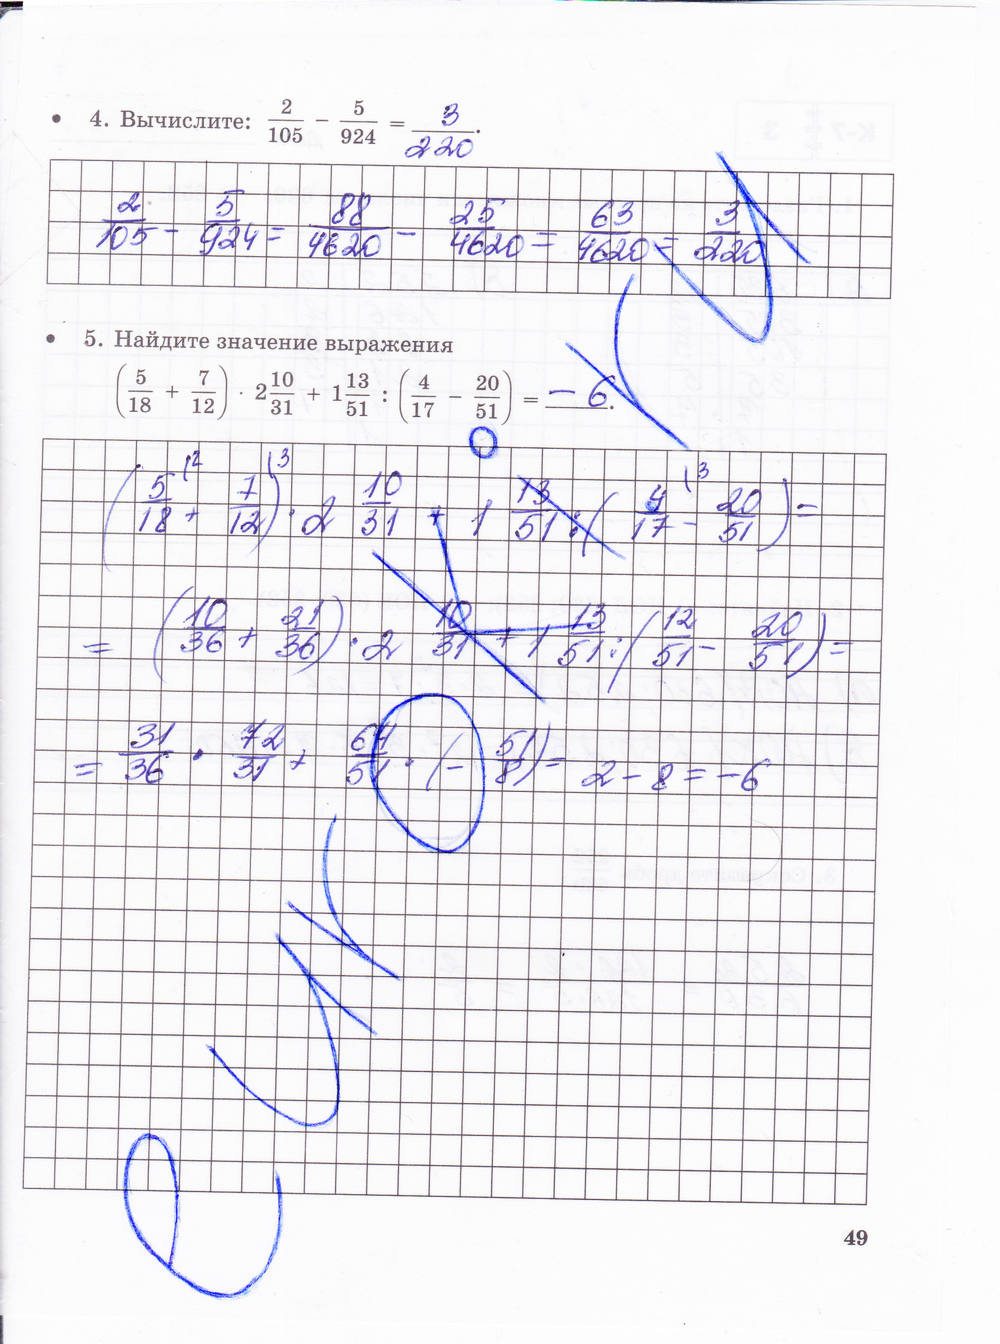 4. Вычислите: 2/105 − 5/924 = 3/220.
2/105 − 5/924 = 88/4620 − 25/4620 = 63/4620 = 3/220
5. Найдите значение выражения
(5/18 + 7/12) · 2 10/31 + 1 13/51 : (4/17 − 20/51) = −6.
(5/18 \2 + 7/12 \3) · 2 10/31 + 1 13/51 : (4/17 \3 − 20/51) =
= (10/36 + 21/36) · 2 10/31 + 1 13/51 : (12/51 − 20/51) =
= 31/36 · 72/31 + 64/51 · (− 51/8) = 2 − 8 = −6
49